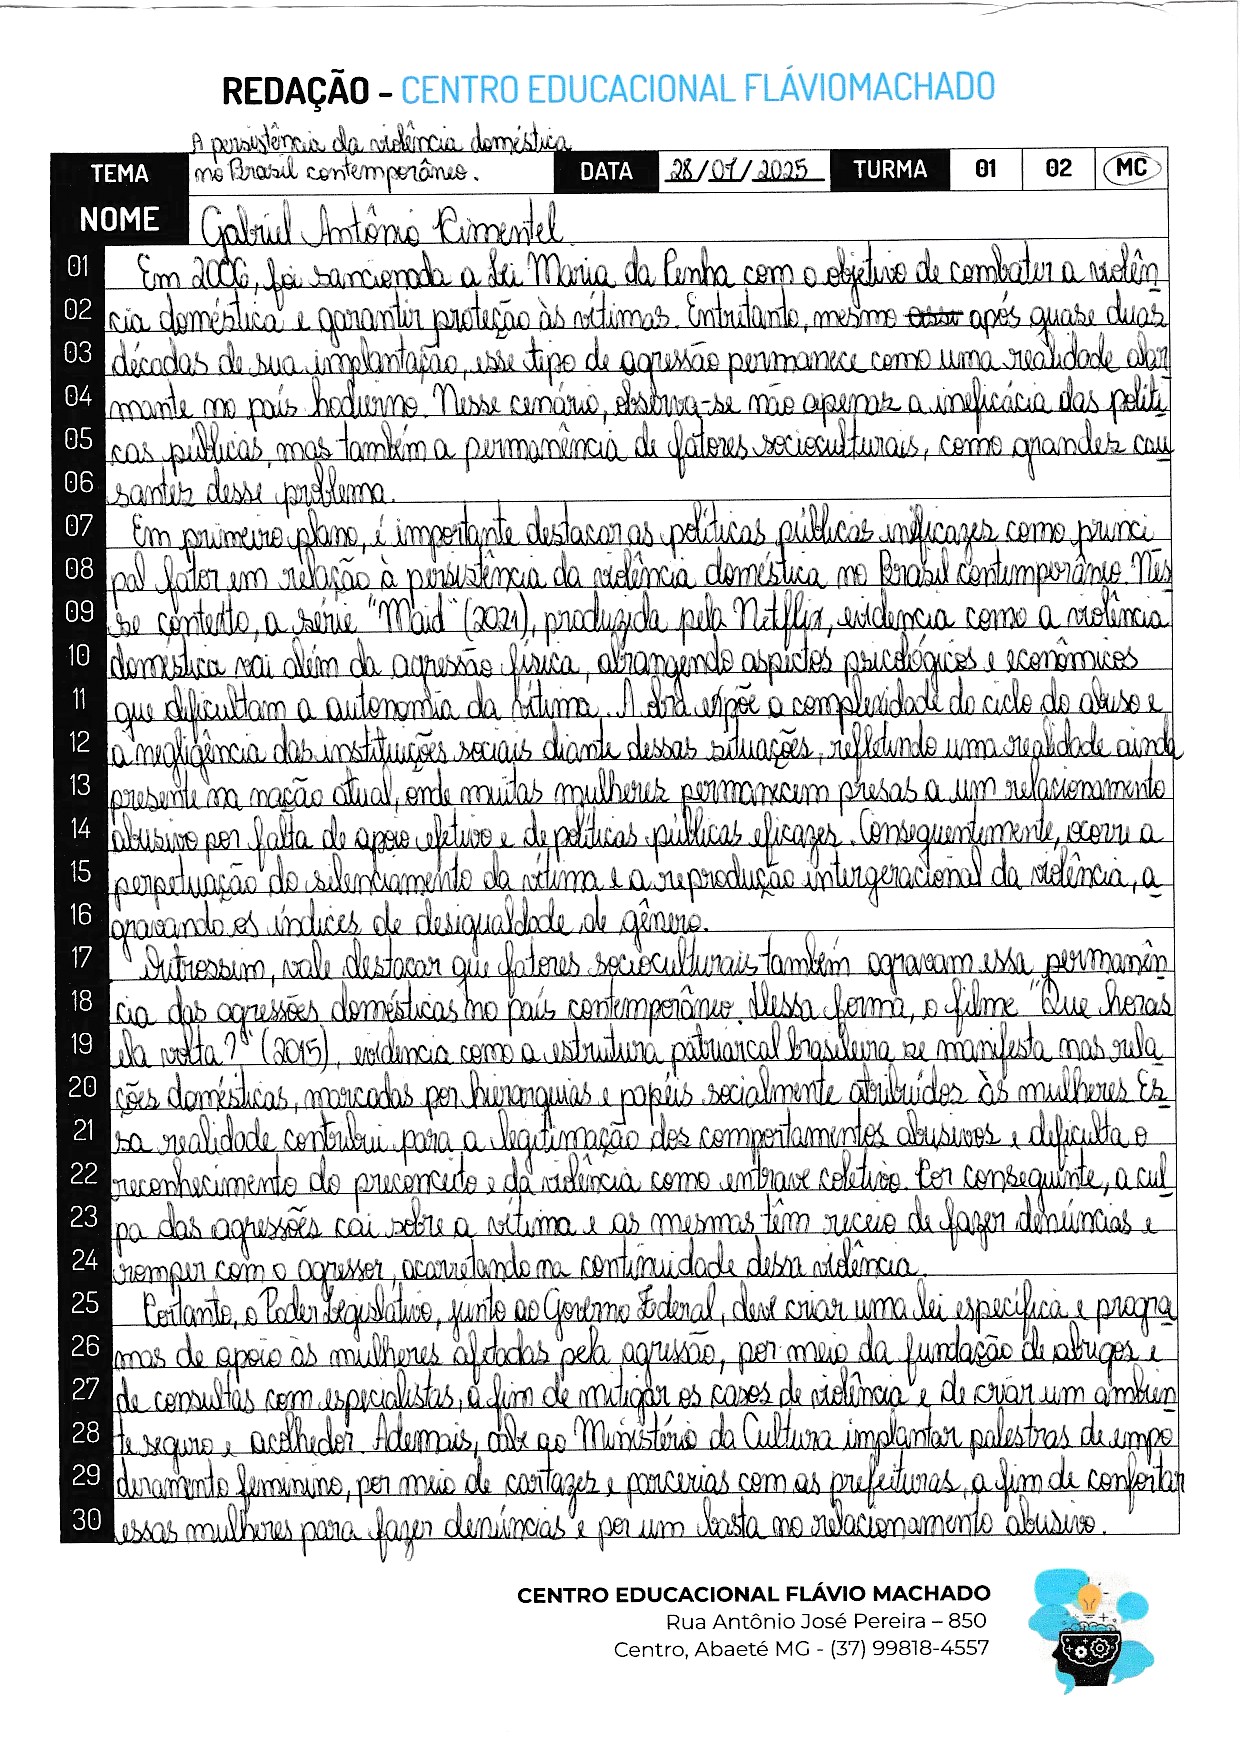 REDAÇÃO - CENTRO EDUCACIONAL FLÁVIOMACHADO
A persistência da violência doméstica
TEMA no Brasil contemporâneo. DATA 28/01/2025 TURMA 01 02 MC
NOME Gabriel Antônio Pimentel
01 Em 2006, foi sancionada a Lei Maria da Penha com o objetivo de combater a violên
02 cia doméstica e garantir proteção às vítimas. Entretanto, mesmo após quase duas
03 décadas de sua implantação, esse tipo de agressão permanece como uma realidade alar
04 mante no país hodierno. Nesse cenário, observa-se não apenas a ineficácia das políti
05 cas públicas, mas também a permanência de fatores socioculturais, como grandes cau
06 santes desse problema.
07 Em primeiro plano, é importante destacar as políticas públicas ineficazes como princi
08 pal fator em relação à persistência da violência doméstica no Brasil contemporâneo. Nes
09 se contexto, a série "Maid" (2021), produzida pela Netflix, evidencia como a violência
10 doméstica vai além da agressão física, abrangendo aspectos psicológicos e econômicos
11 que dificultam a autonomia da vítima. A obra expõe a complexidade do ciclo do abuso e
12 a negligência das instituições sociais diante dessas situações, refletindo uma realidade ainda
13 presente na nação atual, onde muitas mulheres permanecem presas a um relacionamento
14 abusivo por falta de apoio efetivo e de políticas públicas eficazes. Consequentemente, ocorre a
15 perpetuação do silenciamento da vítima e a reprodução intergeracional da violência, a
16 gravando os índices de desigualdade de gênero.
17 Outrossim, vale destacar que fatores socioculturais também agravam essa permanên
18 cia das agressões domésticas no país contemporâneo. Dessa forma, o filme "Que horas
19 ela volta?" (2015), evidencia como a estrutura patriarcal brasileira se manifesta nas rela
20 ções domésticas, marcadas por hierarquias e papéis socialmente atribuídos às mulheres Es
21 sa realidade contribui para a legitimação dos comportamentos abusivos e dificulta o
22 reconhecimento do preconceito e da violência como entrave coletivo. Por conseguinte, a cul
23 pa das agressões cai sobre a vítima e as mesmas têm receio de fazer denúncias e
24 romper com o agressor, acarretando na continuidade dessa violência.
25 Portanto, o Poder Legislativo, junto ao Governo Federal, deve criar uma lei específica e progra
26 mas de apoio às mulheres afetadas pela agressão, por meio da fundação de abrigos e
27 de consultas com especialistas, a fim de mitigar os casos de violência e de criar um ambien
28 te seguro e acolhedor. Ademais, cabe ao Ministério da Cultura implantar palestras de empo
29 deramento feminino, por meio de cartazes e parcerias com as prefeituras, a fim de confortar
30 essas mulheres para fazer denúncias e por um basta no relacionamento abusivo.
CENTRO EDUCACIONAL FLÁVIO MACHADO
Rua Antônio José Pereira – 850
Centro, Abaeté MG - (37) 99818-4557